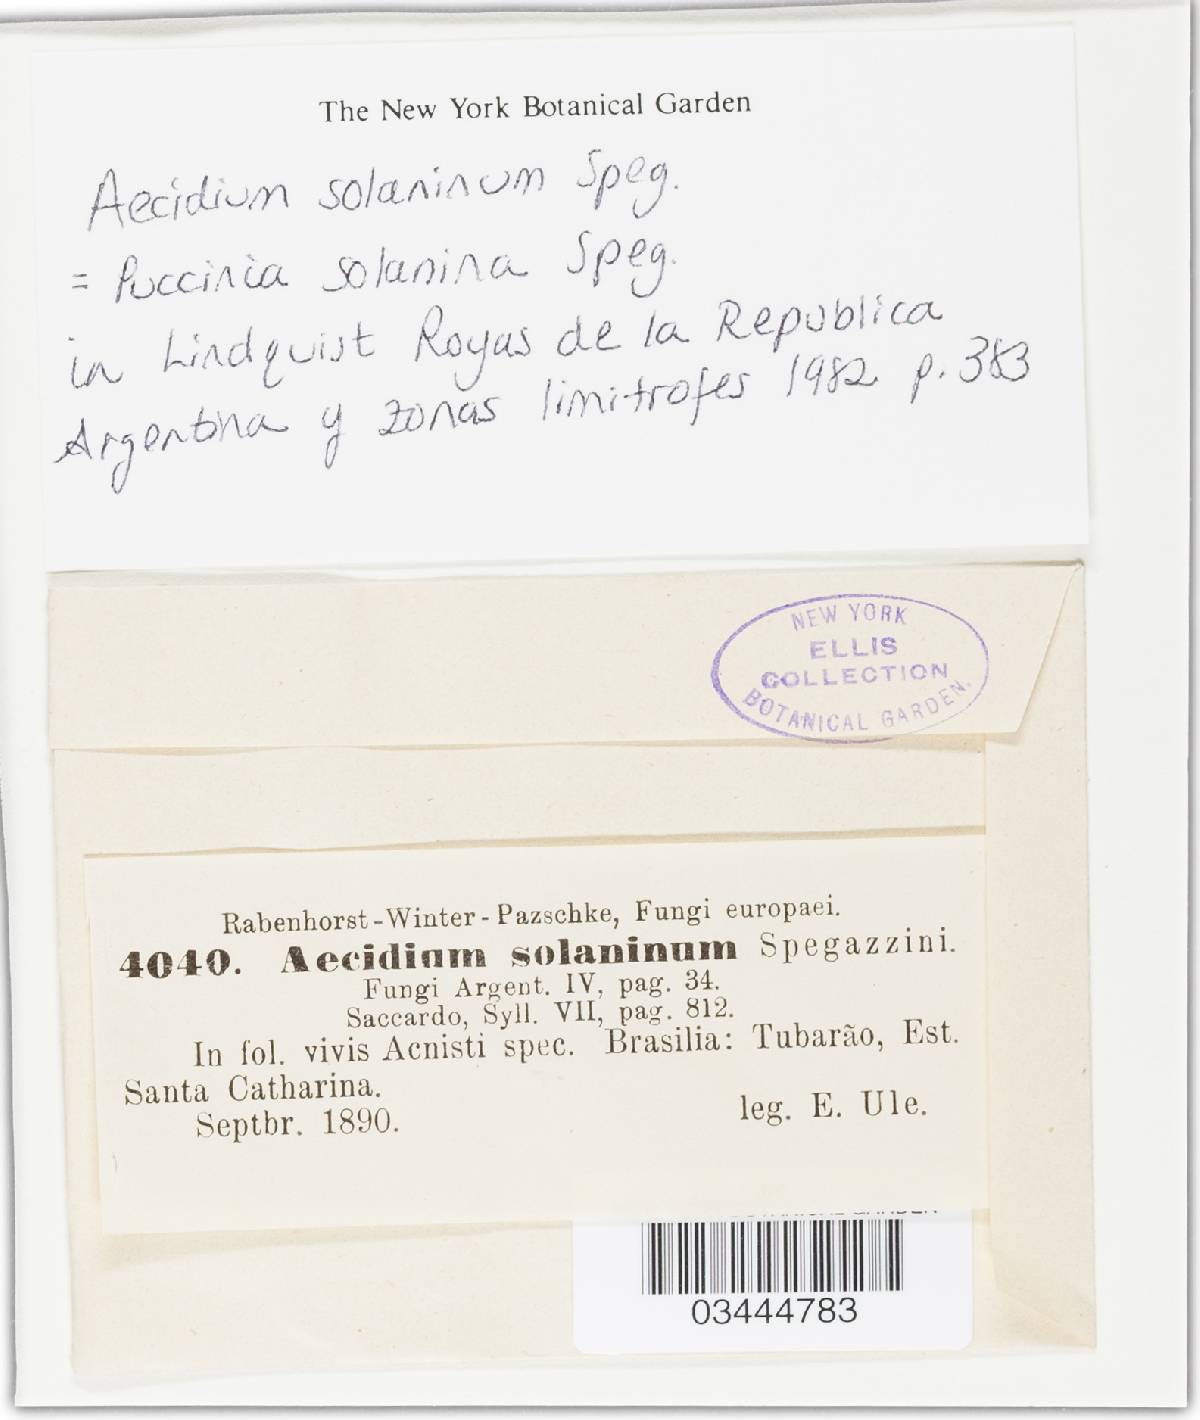 The New York Botanical Garden
Aecidium solaninum Speg.
= Puccinia solanina Speg.
in Lindquist Royas de la Republica
Argentina y zonas limitrofes 1982 p. 383
NEW YORK
ELLIS
COLLECTION
BOTANICAL GARDEN.
Rabenhorst-Winter-Pazschke, Fungi europaei.
4040. Aecidium solaninum Spegazzini.
Fungi Argent. IV, pag. 34.
Saccardo, Syll. VII, pag. 812.
In fol. vivis Acnisti spec. Brasilia: Tubarão, Est.
Santa Catharina.
Septbr. 1890. leg. E. Ule.
03444783